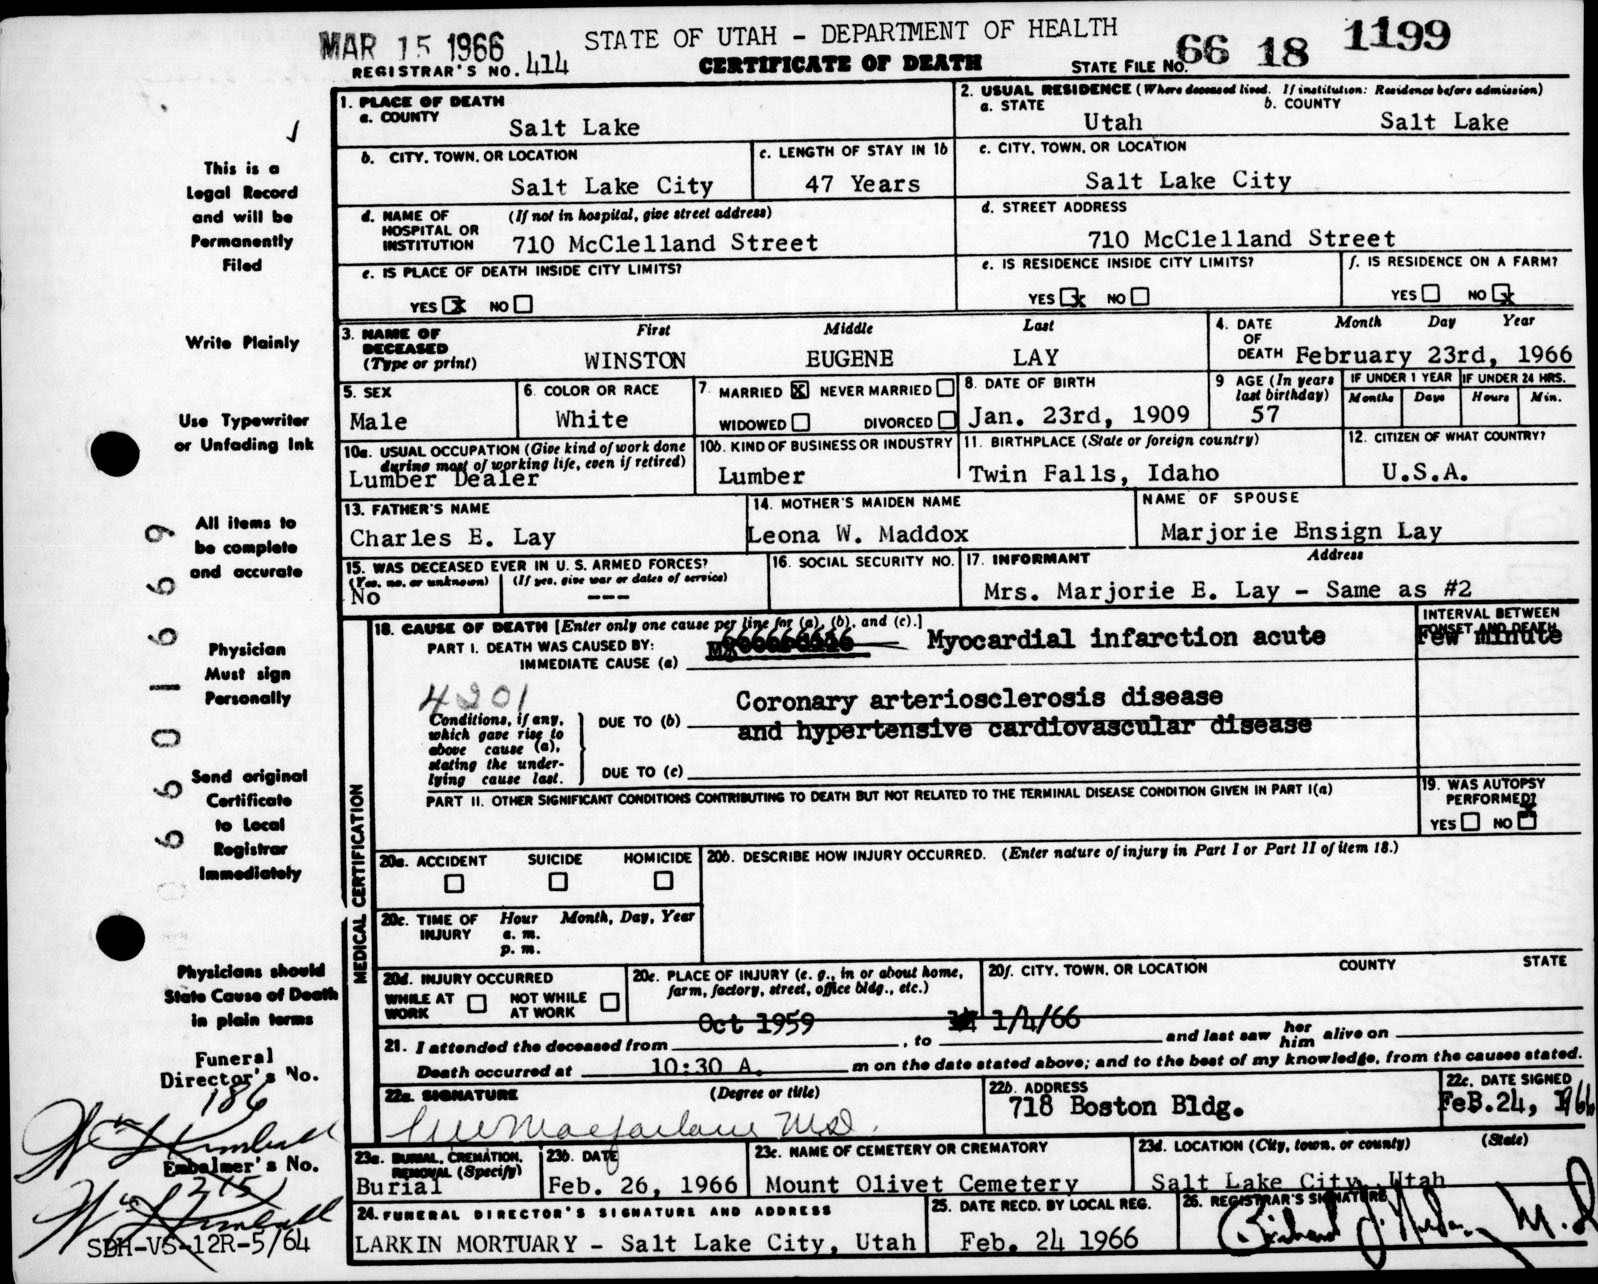 MAR 15 1966
STATE OF UTAH - DEPARTMENT OF HEALTH
66 18 1199
REGISTRAR'S NO. 414
CERTIFICATE OF DEATH
STATE FILE NO.
1. PLACE OF DEATH
a. COUNTY
Salt Lake
2. USUAL RESIDENCE (Where deceased lived. If institution: Residence before admission)
a. STATE
Utah
b. COUNTY
Salt Lake
b. CITY, TOWN, OR LOCATION
Salt Lake City
c. LENGTH OF STAY IN 1b
47 Years
c. CITY, TOWN, OR LOCATION
Salt Lake City
d. NAME OF HOSPITAL OR INSTITUTION
(If not in hospital, give street address)
710 McClelland Street
d. STREET ADDRESS
710 McClelland Street
e. IS PLACE OF DEATH INSIDE CITY LIMITS?
YES x NO
e. IS RESIDENCE INSIDE CITY LIMITS?
YES x NO
f. IS RESIDENCE ON A FARM?
YES NO x
3. NAME OF DECEASED
(Type or print)
First Middle Last
WINSTON EUGENE LAY
4. DATE OF DEATH
Month Day Year
February 23rd, 1966
5. SEX
Male
6. COLOR OR RACE
White
7. MARRIED X NEVER MARRIED
WIDOWED DIVORCED
8. DATE OF BIRTH
Jan. 23rd, 1909
9 AGE (In years last birthday)
57
IF UNDER 1 YEAR
Months Days
IF UNDER 24 HRS.
Hours Min.
10a. USUAL OCCUPATION (Give kind of work done during most of working life, even if retired)
Lumber Dealer
10b. KIND OF BUSINESS OR INDUSTRY
Lumber
11. BIRTHPLACE (State or foreign country)
Twin Falls, Idaho
12. CITIZEN OF WHAT COUNTRY?
U.S.A.
13. FATHER'S NAME
Charles E. Lay
14. MOTHER'S MAIDEN NAME
Leona W. Maddox
NAME OF SPOUSE
Marjorie Ensign Lay
15. WAS DECEASED EVER IN U. S. ARMED FORCES?
(Yes, no, or unknown) (If yes, give war or dates of service)
No ---
16. SOCIAL SECURITY NO.
17. INFORMANT Address
Mrs. Marjorie E. Lay - Same as #2
18. CAUSE OF DEATH [Enter only one cause per line for (a), (b), and (c).]
PART I. DEATH WAS CAUSED BY:
IMMEDIATE CAUSE (a)
Myocardial infarction acute
INTERVAL BETWEEN
ONSET AND DEATH
Few minute
4201
Conditions, if any, which gave rise to above cause (a), stating the underlying cause last.
DUE TO (b)
Coronary arteriosclerosis disease
and hypertensive cardiovascular disease
DUE TO (c)
PART II. OTHER SIGNIFICANT CONDITIONS CONTRIBUTING TO DEATH BUT NOT RELATED TO THE TERMINAL DISEASE CONDITION GIVEN IN PART I(a)
19. WAS AUTOPSY PERFORMED?
YES NO x
MEDICAL CERTIFICATION
20a. ACCIDENT SUICIDE HOMICIDE
20b. DESCRIBE HOW INJURY OCCURRED. (Enter nature of injury in Part I or Part II of item 18.)
20c. TIME OF INJURY
Hour Month, Day, Year
a. m.
p. m.
20d. INJURY OCCURRED
WHILE AT WORK NOT WHILE AT WORK
20e. PLACE OF INJURY (e. g., in or about home, farm, factory, street, office bldg., etc.)
20f. CITY, TOWN, OR LOCATION COUNTY STATE
21. I attended the deceased from Oct 1959, to 1/4/66 and last saw her him alive on
Death occurred at 10:30 A. m on the date stated above; and to the best of my knowledge, from the causes stated.
22a. SIGNATURE (Degree or title)
Macfarlane M.D.
22b. ADDRESS
718 Boston Bldg.
22c. DATE SIGNED
FeB.24, 1966
23a. BURIAL, CREMATION, REMOVAL (Specify)
Burial
23b. DATE
Feb. 26, 1966
23c. NAME OF CEMETERY OR CREMATORY
Mount Olivet Cemetery
23d. LOCATION (City, town, or county) (State)
Salt Lake City, Utah
24. FUNERAL DIRECTOR'S SIGNATURE AND ADDRESS
LARKIN MORTUARY - Salt Lake City, Utah
25. DATE RECD. BY LOCAL REG.
Feb. 24 1966
26. REGISTRAR'S SIGNATURE
M.D.
This is a
Legal Record
and will be
Permanently
Filed
Write Plainly
Use Typewriter
or Unfading Ink
All items to
be complete
and accurate
Physician
Must sign
Personally
Send original
Certificate
to Local
Registrar
Immediately
Physicians should
State Cause of Death
in plain terms
Funeral
Director's No.
186
Wm L Kimball
Embalmer's No.
215
Wm L Kimball
SDH-VS-12R-5/64
66016669